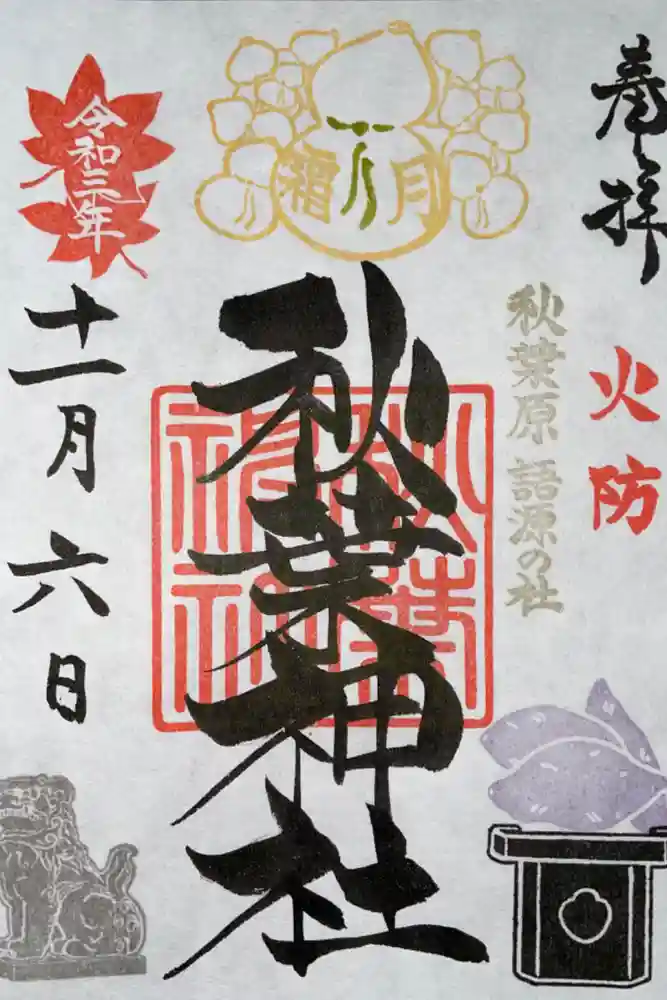 奉拝
火防
秋葉原 語源の社
霜月
秋葉神社
令和三年
十一月六日